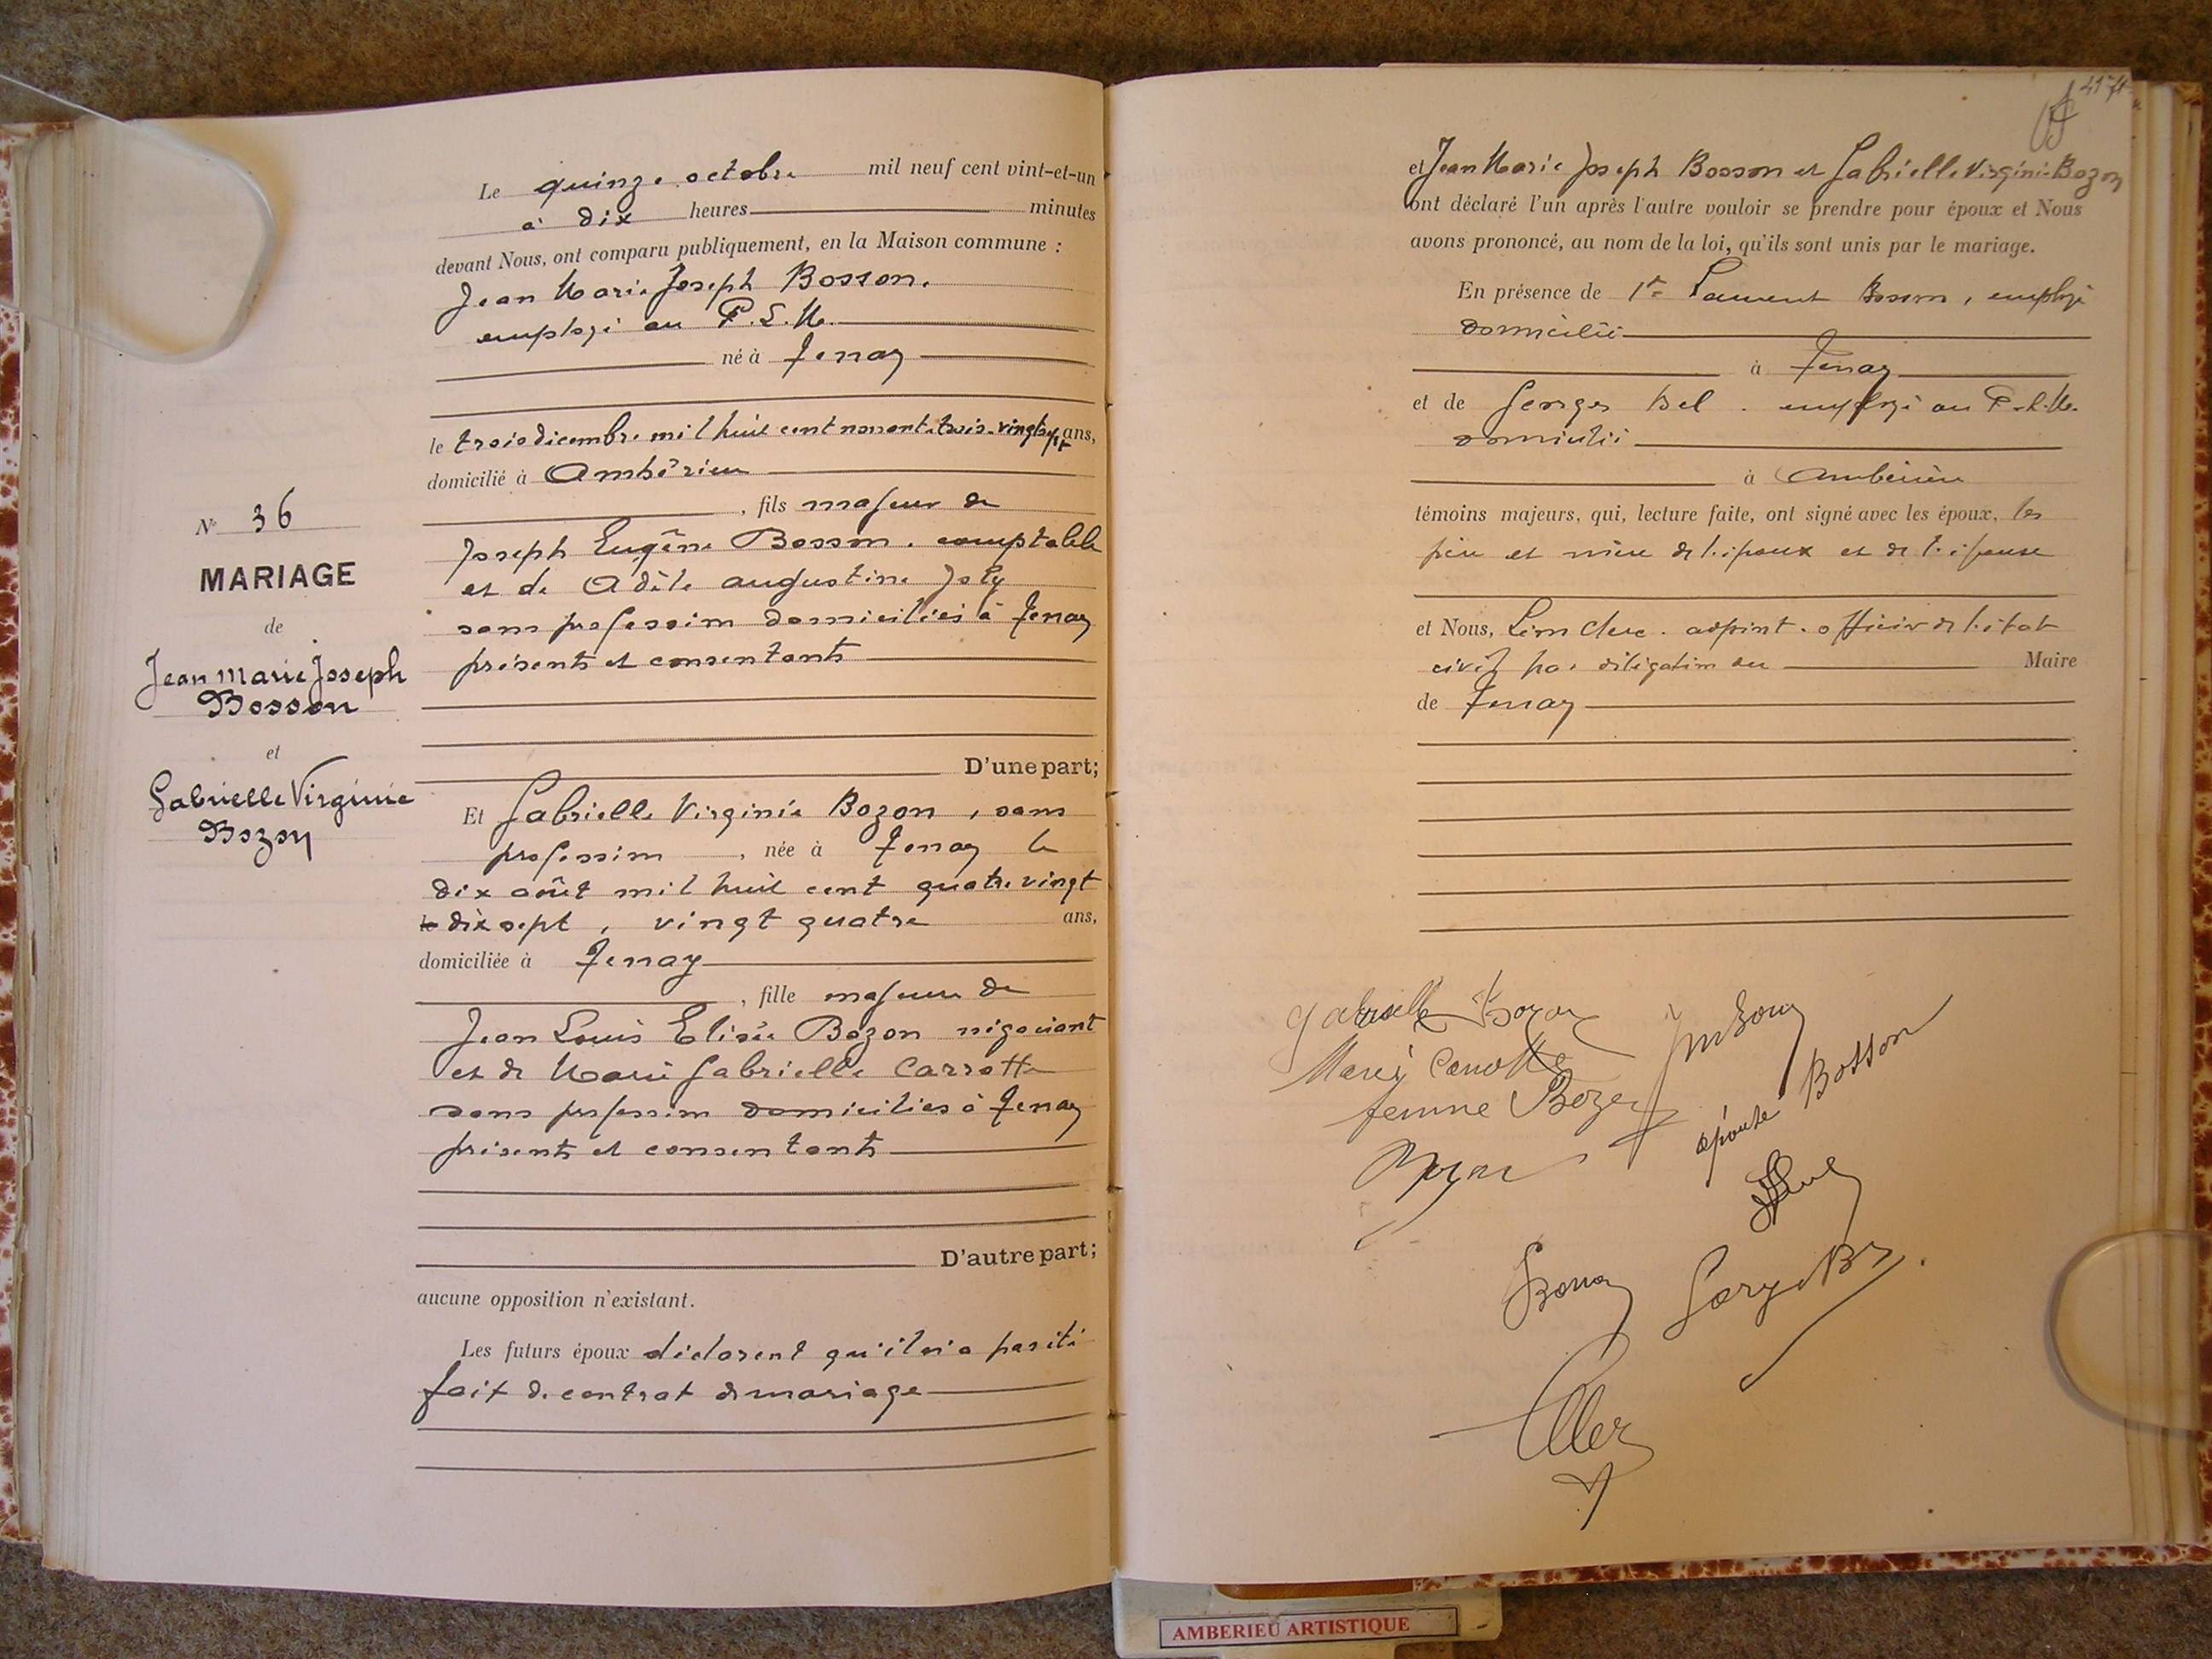 N° 36
MARIAGE
de
Jean Marie Joseph
Bosson
et
Gabrielle Virginie
Bozon
Le quinze octobre mil neuf cent vint-et-un
à dix heures minutes
devant Nous, ont comparu publiquement, en la Maison commune :
Jean Marie Joseph Bosson.
employé au P.L.M.
né à Tenay
le trois décembre mil huit cent nonante trois. vingt sept ans,
domicilié à Ambérieu
, fils majeur de
Joseph Eugène Bosson. comptable
et de Adèle augustine Joly
sans profession domiciliés à Tenay
présents et consentants
D'une part;
Et Gabrielle Virginie Bozon, sans
profession, née à Tenay le
dix août mil huit cent quatre vingt
dix sept, vingt quatre ans,
domiciliée à Tenay
, fille majeure de
Jean Louis Elisée Bozon négociant
et de Marie Gabrielle Carrotte
sans profession domiciliés à Tenay
présents et consentants
D'autre part;
aucune opposition n'existant.
Les futurs époux déclarent qu'il n'a pas été
fait de contrat de mariage
et Jean Marie Joseph Bosson et Gabrielle Virginie Bozon
ont déclaré l'un après l'autre vouloir se prendre pour époux et Nous
avons prononcé, au nom de la loi, qu'ils sont unis par le mariage.
En présence de 1° Laurent Bosson, employé
domicilié
à Tenay
et de Georges Bel. employé au P.L.M.
domicilié
à Ambérieu
témoins majeurs, qui, lecture faite, ont signé avec les époux, les
père et mère de l'époux et de l'épouse
et Nous, Léon Clerc. adjoint. officier de l'état
civil par délégation du Maire
de Tenay
Gabrielle Bozon
Marie Carrotte
femme Bozon
épouse Bosson
Bozon
AMBERIEU ARTISTIQUE